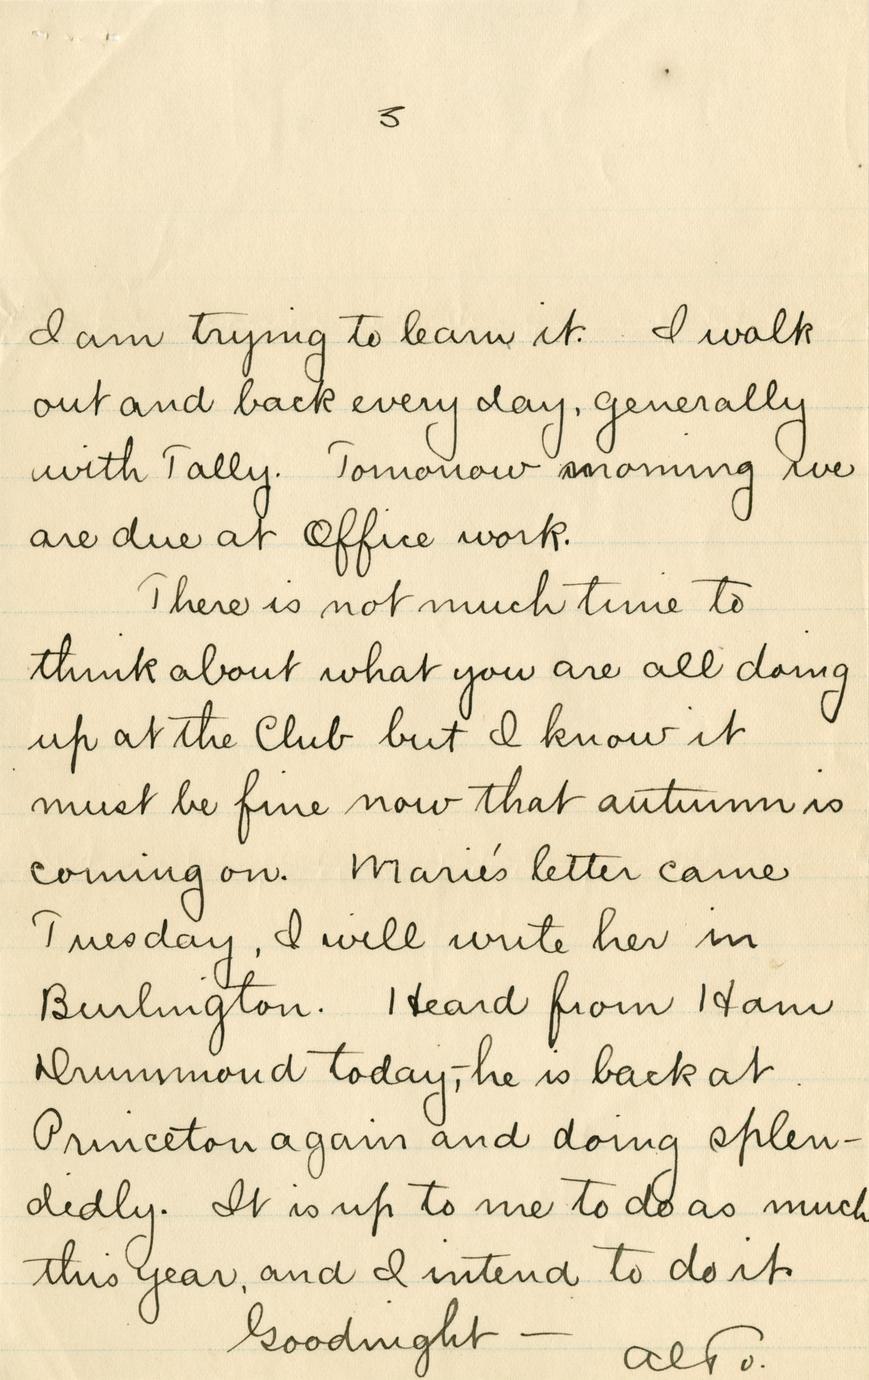 3
I am trying to learn it. I walk
out and back every day, generally
with Tally. Tomorrow morning we
are due at Office work.
There is not much time to
think about what you are all doing
up at the Club but I know it
must be fine now that autumn is
coming on. Marie's letter came
Tuesday, I will write her in
Burlington. Heard from Ham
Drummond today,-he is back at
Princeton again and doing splen-
didly. It is up to me to do as much
this year, and I intend to do it.
Goodnight —